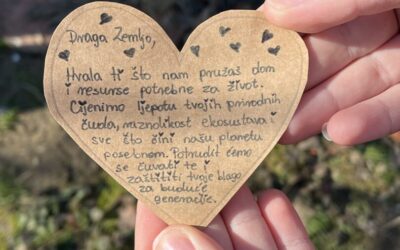 Draga Zemljo,
Hvala ti što nam pružaš dom
i resurse potrebne za život.
Cijenimo ljepotu tvojih prirodnih
čuda, raznolikost ekosustava i
sve što čini našu planetu
posebnom. Potrudit ćemo
se čuvati te i
zaštititi tvoje blago
za buduće
generacije.